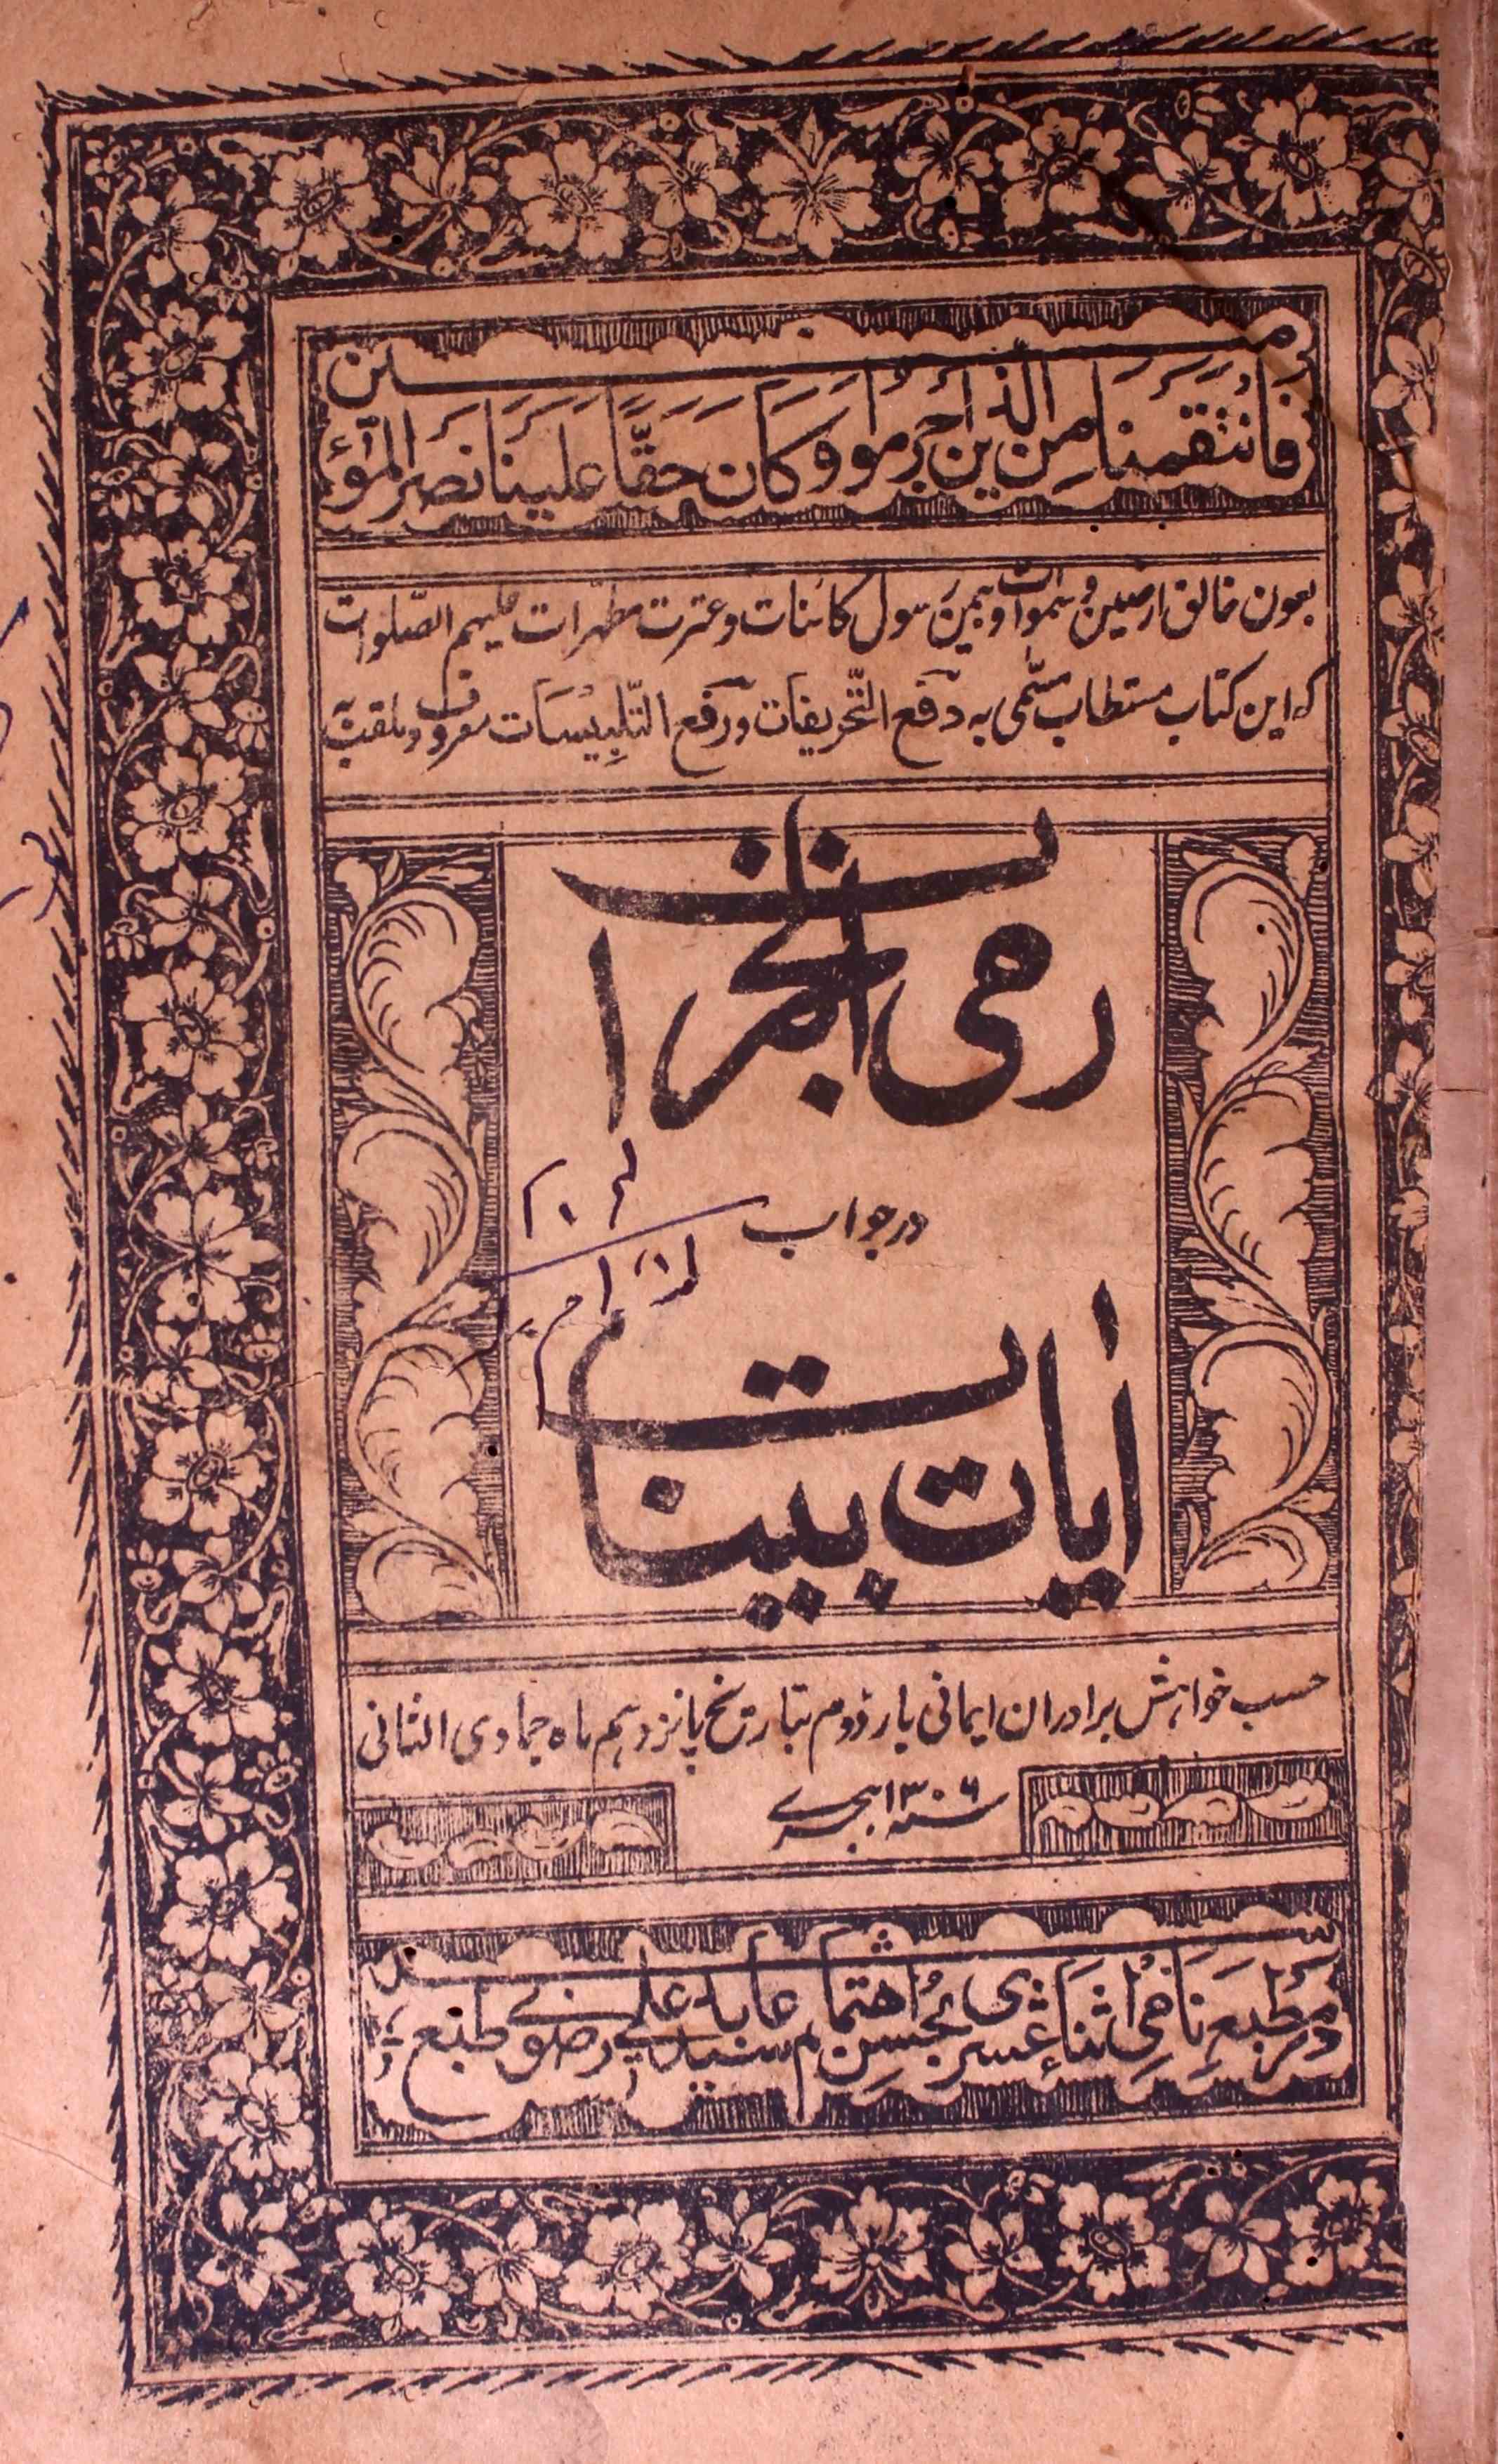 فَانْتَقَمْنَا مِنَ الَّذِينَ أَجْرَمُوا وَكَانَ حَقًّا عَلَيْنَا نَصْرُ الْمُؤْمِنِينَ
بعون خالق ارضین و سموات و بیمن رسول کائنات و عترت مطہرات علیہم الصلوات
کہ این کتاب مستطاب مسمّی بہ دفع التَّحریفات و رفع التَّلبِیسَات معروف و ملقب بہ
رمی الجمرات
در جواب
اٰیات بینات
حسب خواہش برادران ایمانی بار دوم بتاریخ پانزدہم ماہ جمادی الثانی
سنہ ۱۳۰۶ ہجری
در مطبع اثنا عشری بحسن اهتمام سید عابد علی رضوی طبع شد